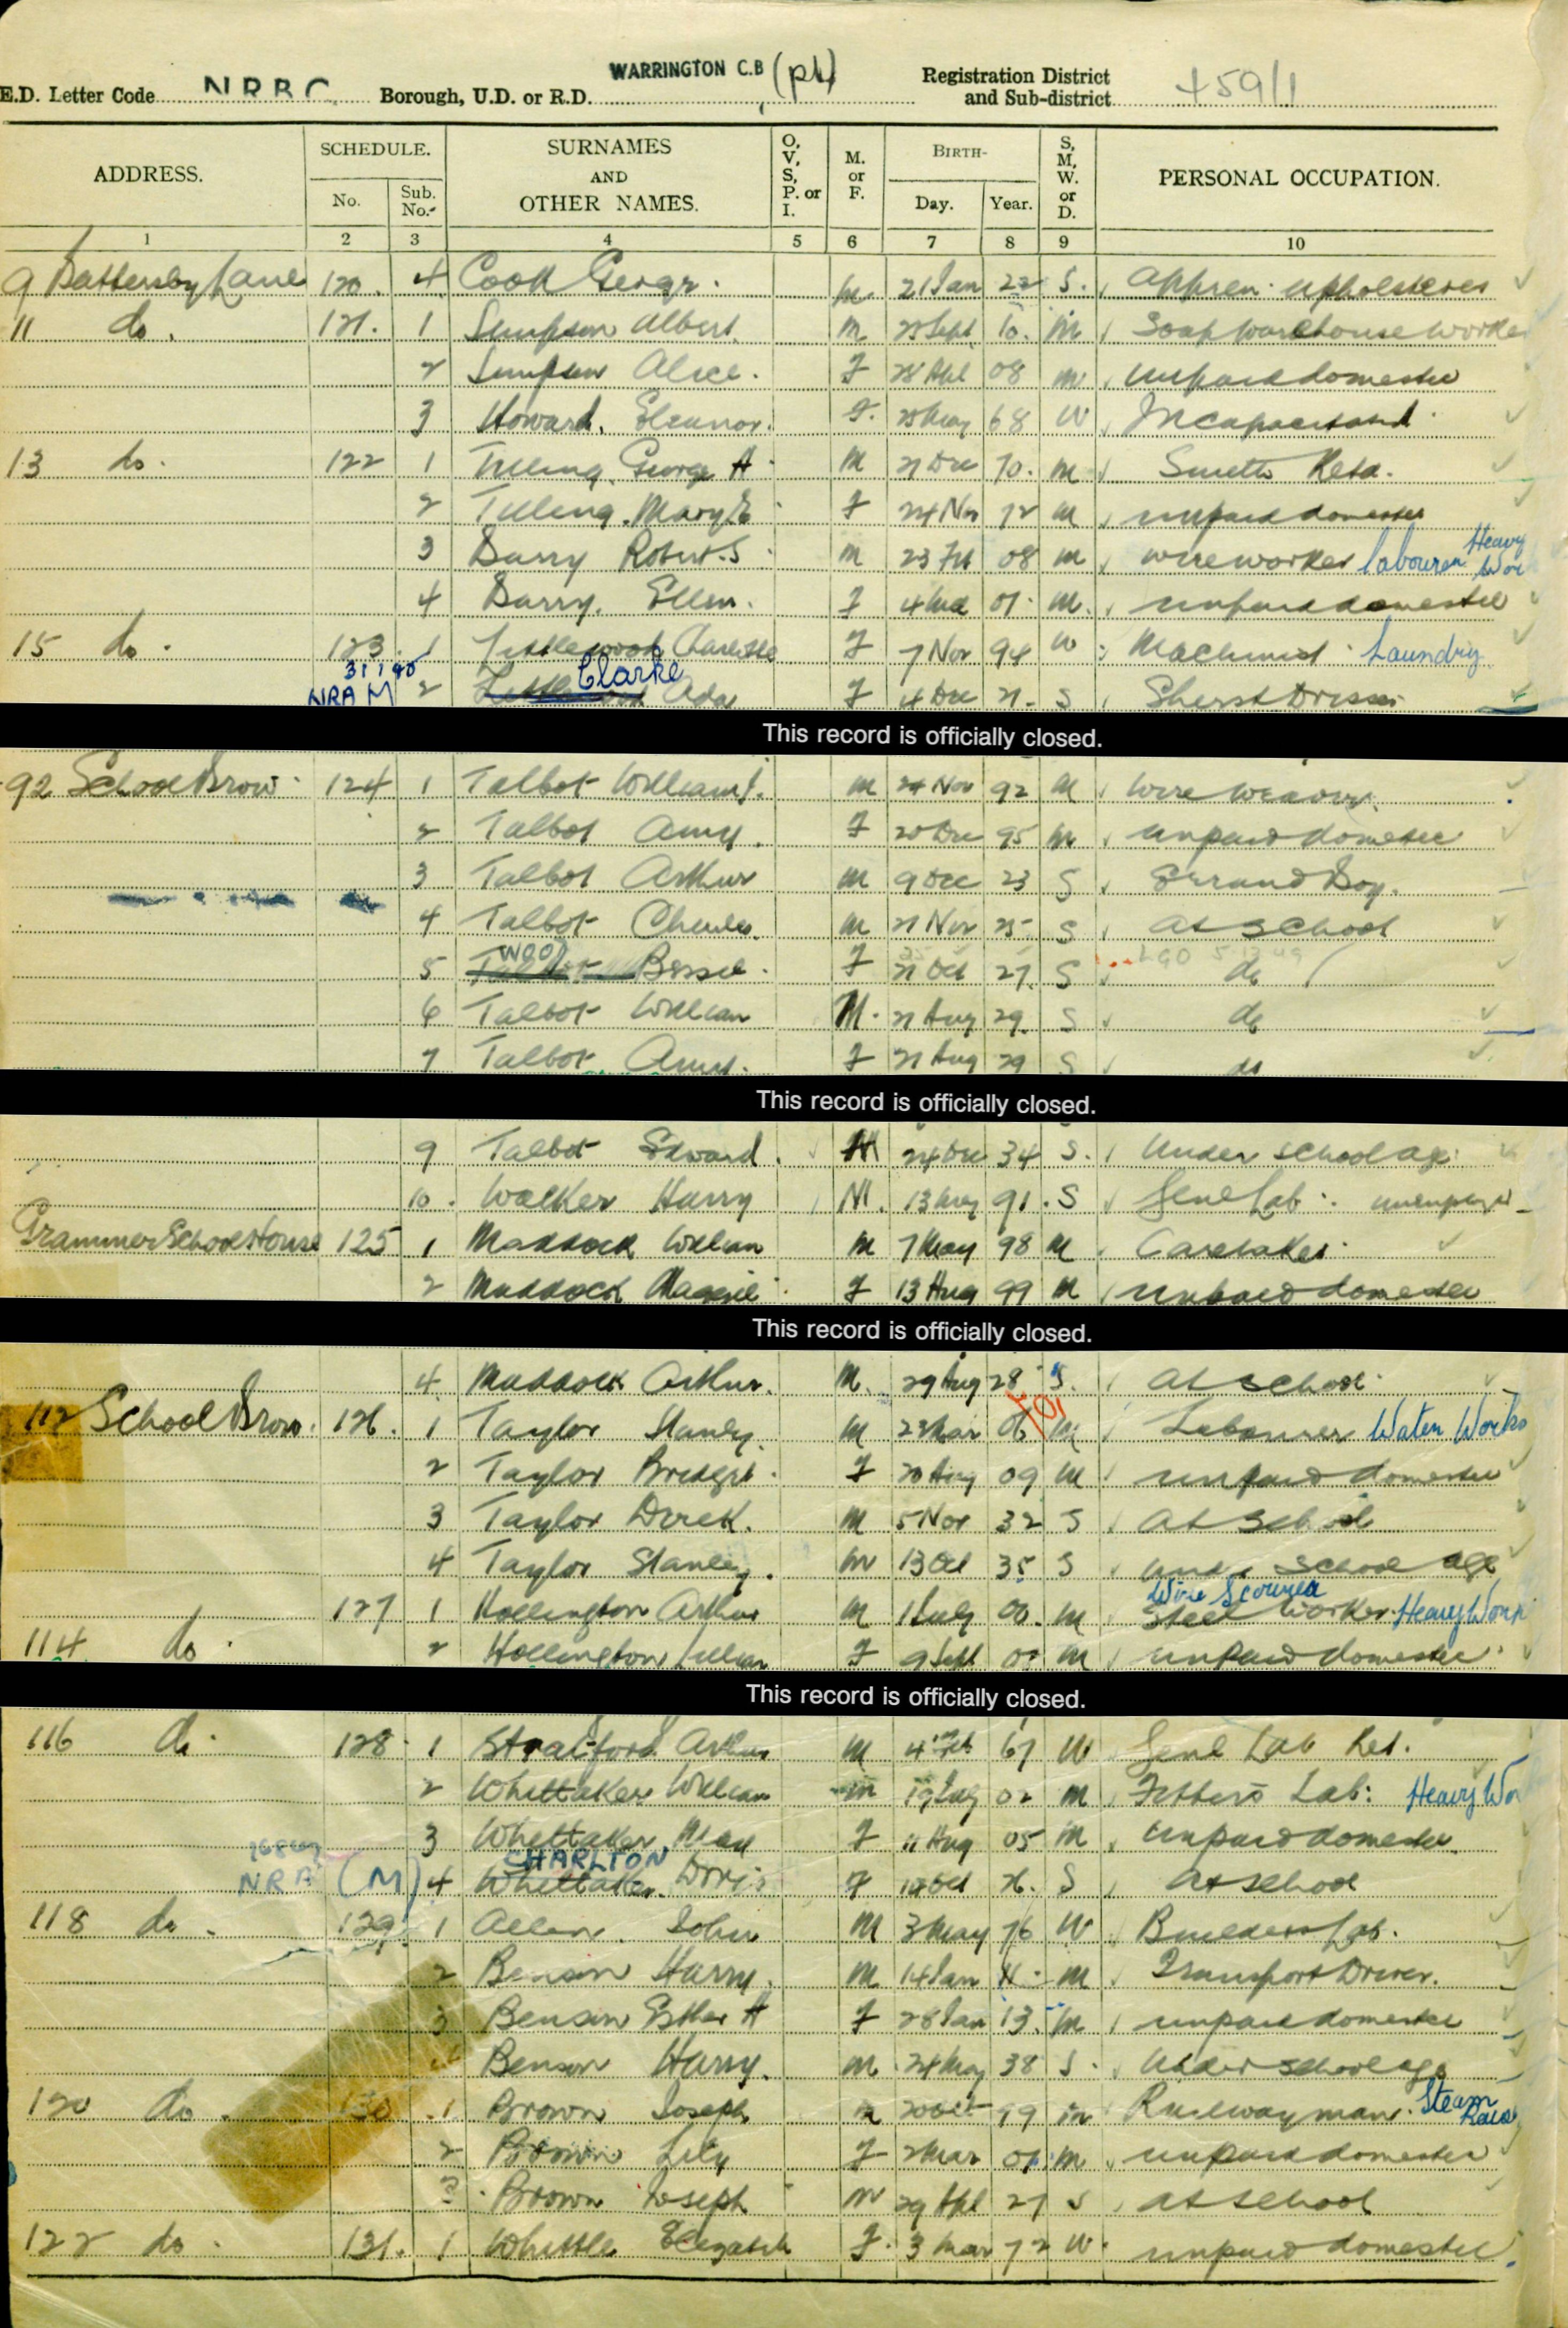 WARRINGTON C.B (pt)
E.D. Letter Code Borough, U.D. or R.D. Registration District and Sub-district 459/1
ADDRESS. SCHEDULE. No. Sub. No. SURNAMES AND OTHER NAMES. O, V, S, P. or I. M. or F. BIRTH- Day. Year. S, M, W. or D. PERSONAL OCCUPATION.
1 2 3 4 5 6 7 8 9 10
9 Battersby Lane 120. 4 Cook George. M. 21 Jan 22 S. Appren. upholsterer
11 do. 121. 1 Simpson Albert. M Sept 10. M Soap warehouse worker
2 Simpson Alice. F 28 Apl 08 M unpaid domestic
3 Howard. Eleanor. F. May 68 W Incapacitated.
13 do. 122 1 George A. M 21 Dec 70. M Smith Retd.
2 Mary E F 24 Nov 72 M unpaid domestic
3 Robert. S M 23 Feb 08 M wireworker labourer Heavy Wor
4 Ellen. F 4 07. M. unpaid domestic
15 do. 123. 1 Littlewood Charlotte F 7 Nov 94 W Machinist Laundry
NRA M 2 Clarke Ada F 4 Dec 21. S
This record is officially closed.
92 School Brow 124 1 Talbot William J. M 24 Nov 92 M Wire weaver.
2 Talbot Amy. F 20 Dec 95 M unpaid domestic
3 Talbot Arthur M 9 Dec 23 S Errand Boy.
4 Talbot Charles. M 21 Nov 25 S At School
5 WOO Bessie. F 21 Oct 27. S do
6 Talbot William M. 21 Aug 29. S do
7 Talbot Amy. F 21 Aug 29 S do
This record is officially closed.
9 Talbot Edward. M 24 Dec 34 S. Under school age
10. Walker Harry M. 13 May 91. S Genl Lab. unemployed
Grammer School House 125 1 Maddock William M 7 May 98 M Caretaker.
2 Maddock Maggie F 13 Aug 99 M unpaid domestic
This record is officially closed.
4 Maddock Arthur. M. 29 Aug 28 S. At School.
112 School Brow. 126. 1 Taylor Stanley. M 23 Mar 06 M Labourer Water Works
2 Taylor Bridget. F 20 Aug 09 M unpaid domestic
3 Taylor Derek. M 5 Nov 32 S At School
4 Taylor Stanley. M 13 Oct 35 S Under School age
Wire Scourer
127 1 Hollington Arthur M 1 July 00. M Steel Worker Heavy Work
114 do. 2 Hollington Lillian F 9 Sept M unpaid domestic.
This record is officially closed.
116 do. 128. 1 Arthur M 4 Feb 67 W Genl Lab Ret.
2 Whittaker William M 19 July 02 M Fitters Lab: Heavy Wor
3 Whittaker May F 11 Aug 05 M unpaid domestic.
CHARLTON
NRA (M) 4 Whittaker. Doris F Oct 26. S At School
118 do. 129. 1 Allen. John M 3 May 76 W Builders Lab.
2 Benson Harry. M 14 Jan 11. M Transport Driver.
3 Benson Esther A F 28 Jan 13. M unpaid domestic
Benson Harry. M 24 May 38 S. Under school age
120 do. 130 1 Brown Joseph M 20 Oct 99 M Railwayman. Steam
2 Brown Lily F 2 Mar 01 M unpaid domestic
3 Brown Joseph M 29 Apl 27 S At School
122 do. 131. 1 Whittle Elizabeth F. 3 Mar 72 W. unpaid domestic.